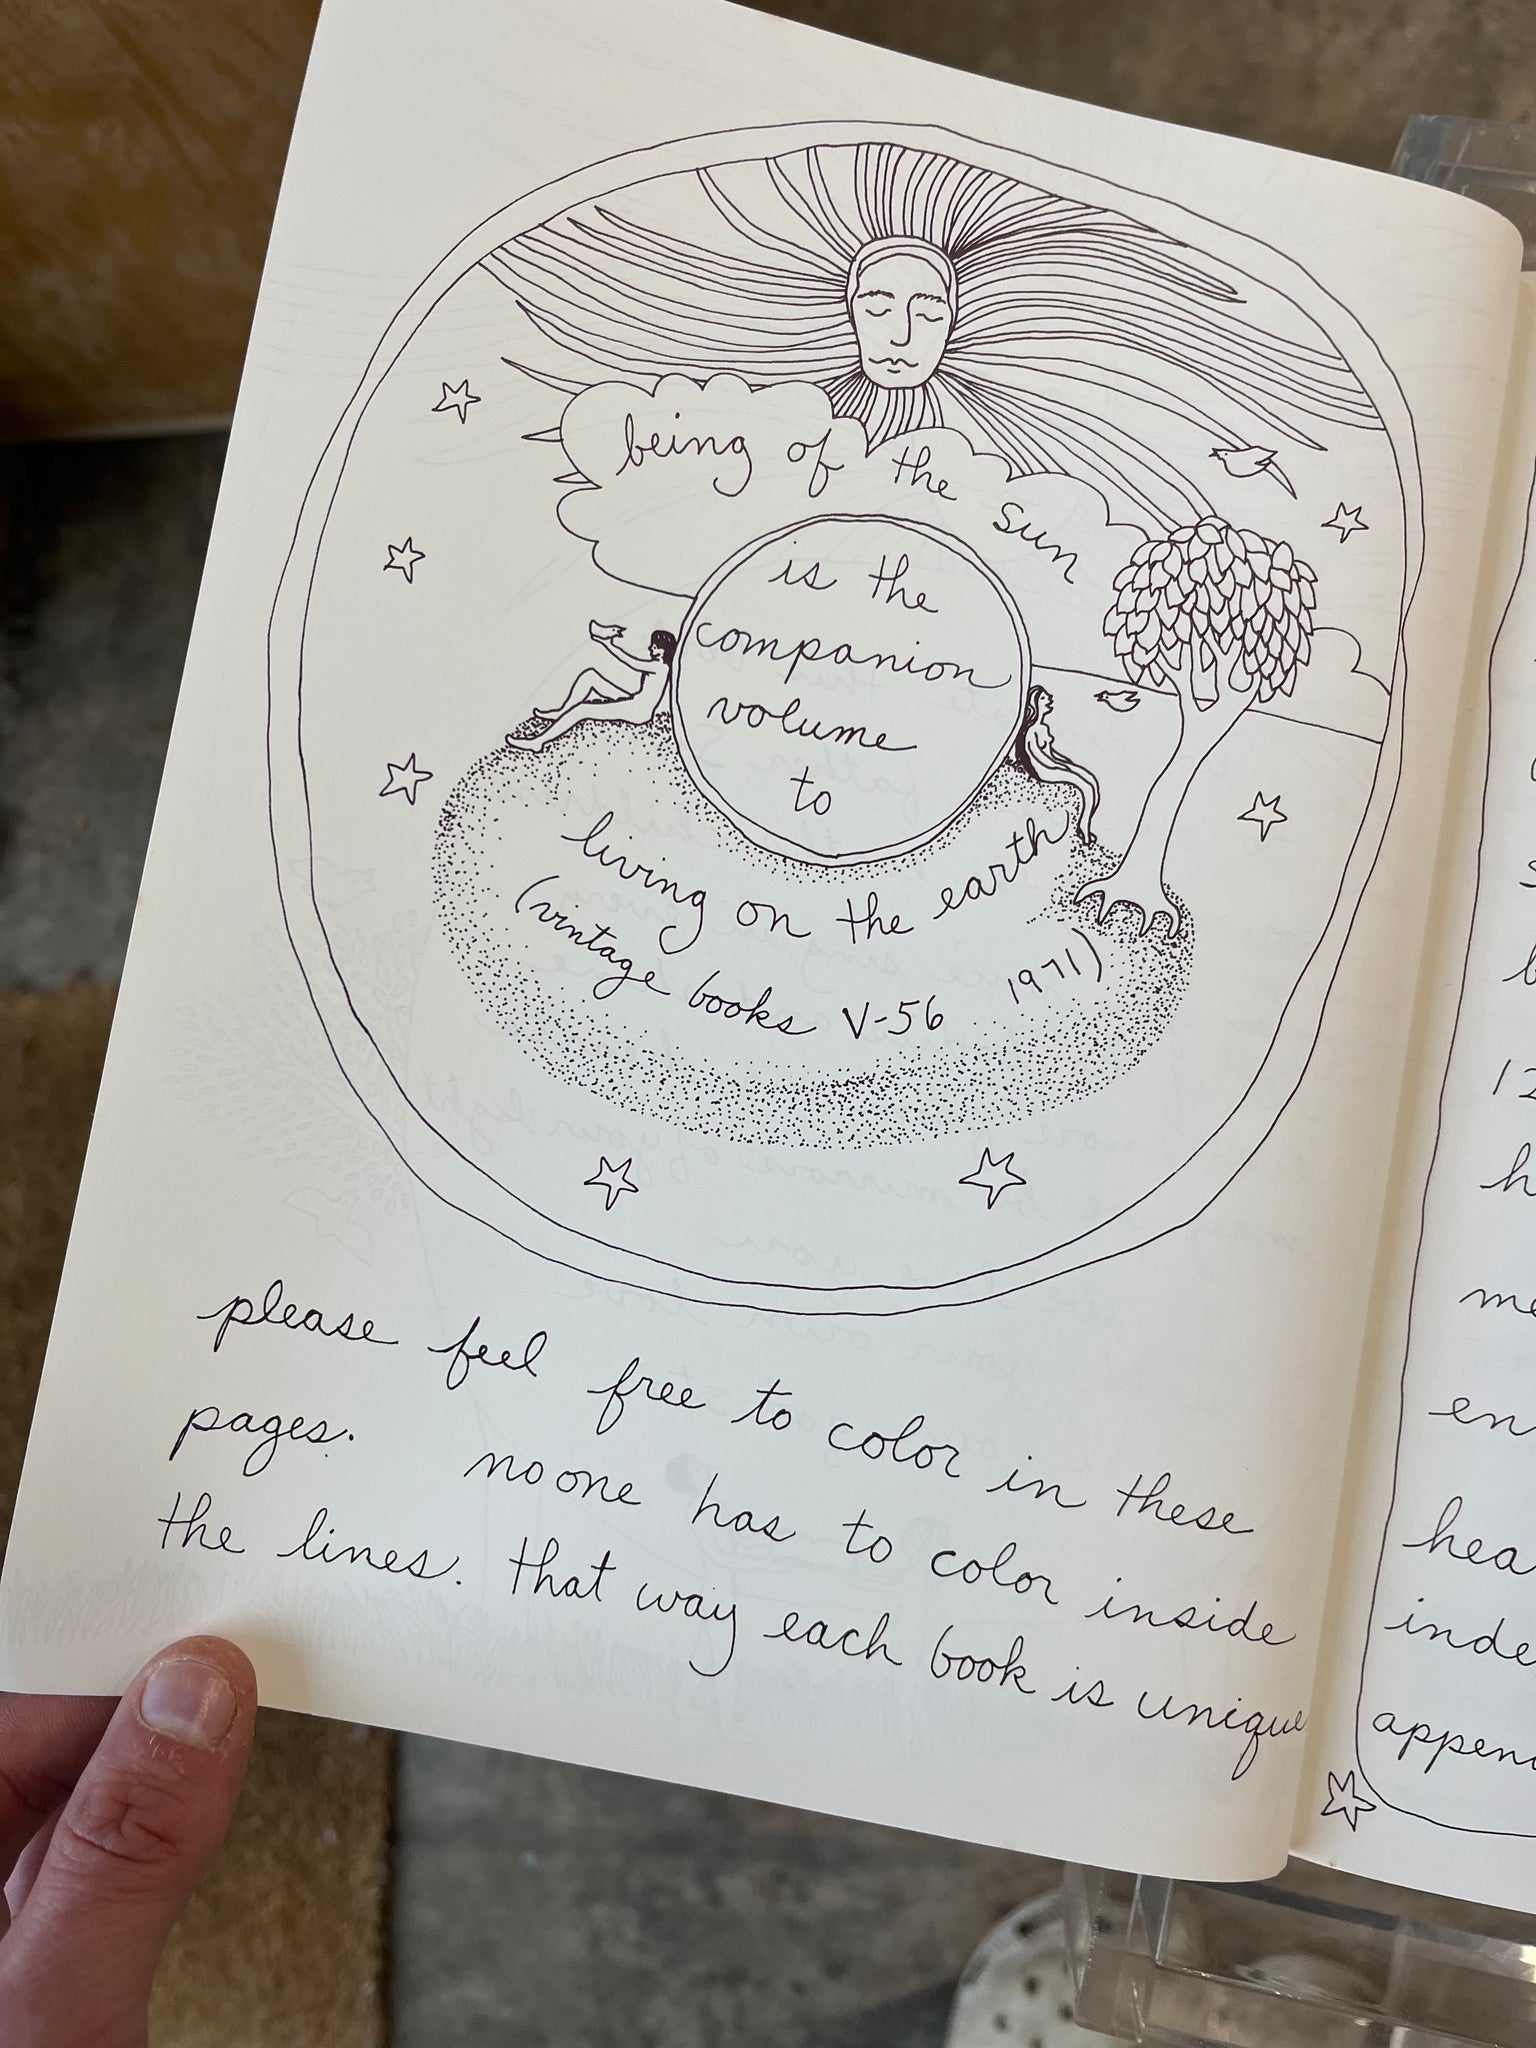 being of the sun
is the
companion
volume
to
living on the earth
(vintage books V-56 1971)
please feel free to color in these
pages. no one has to color inside
the lines. that way each book is unique
12
h
me
en
hea
inde
appen